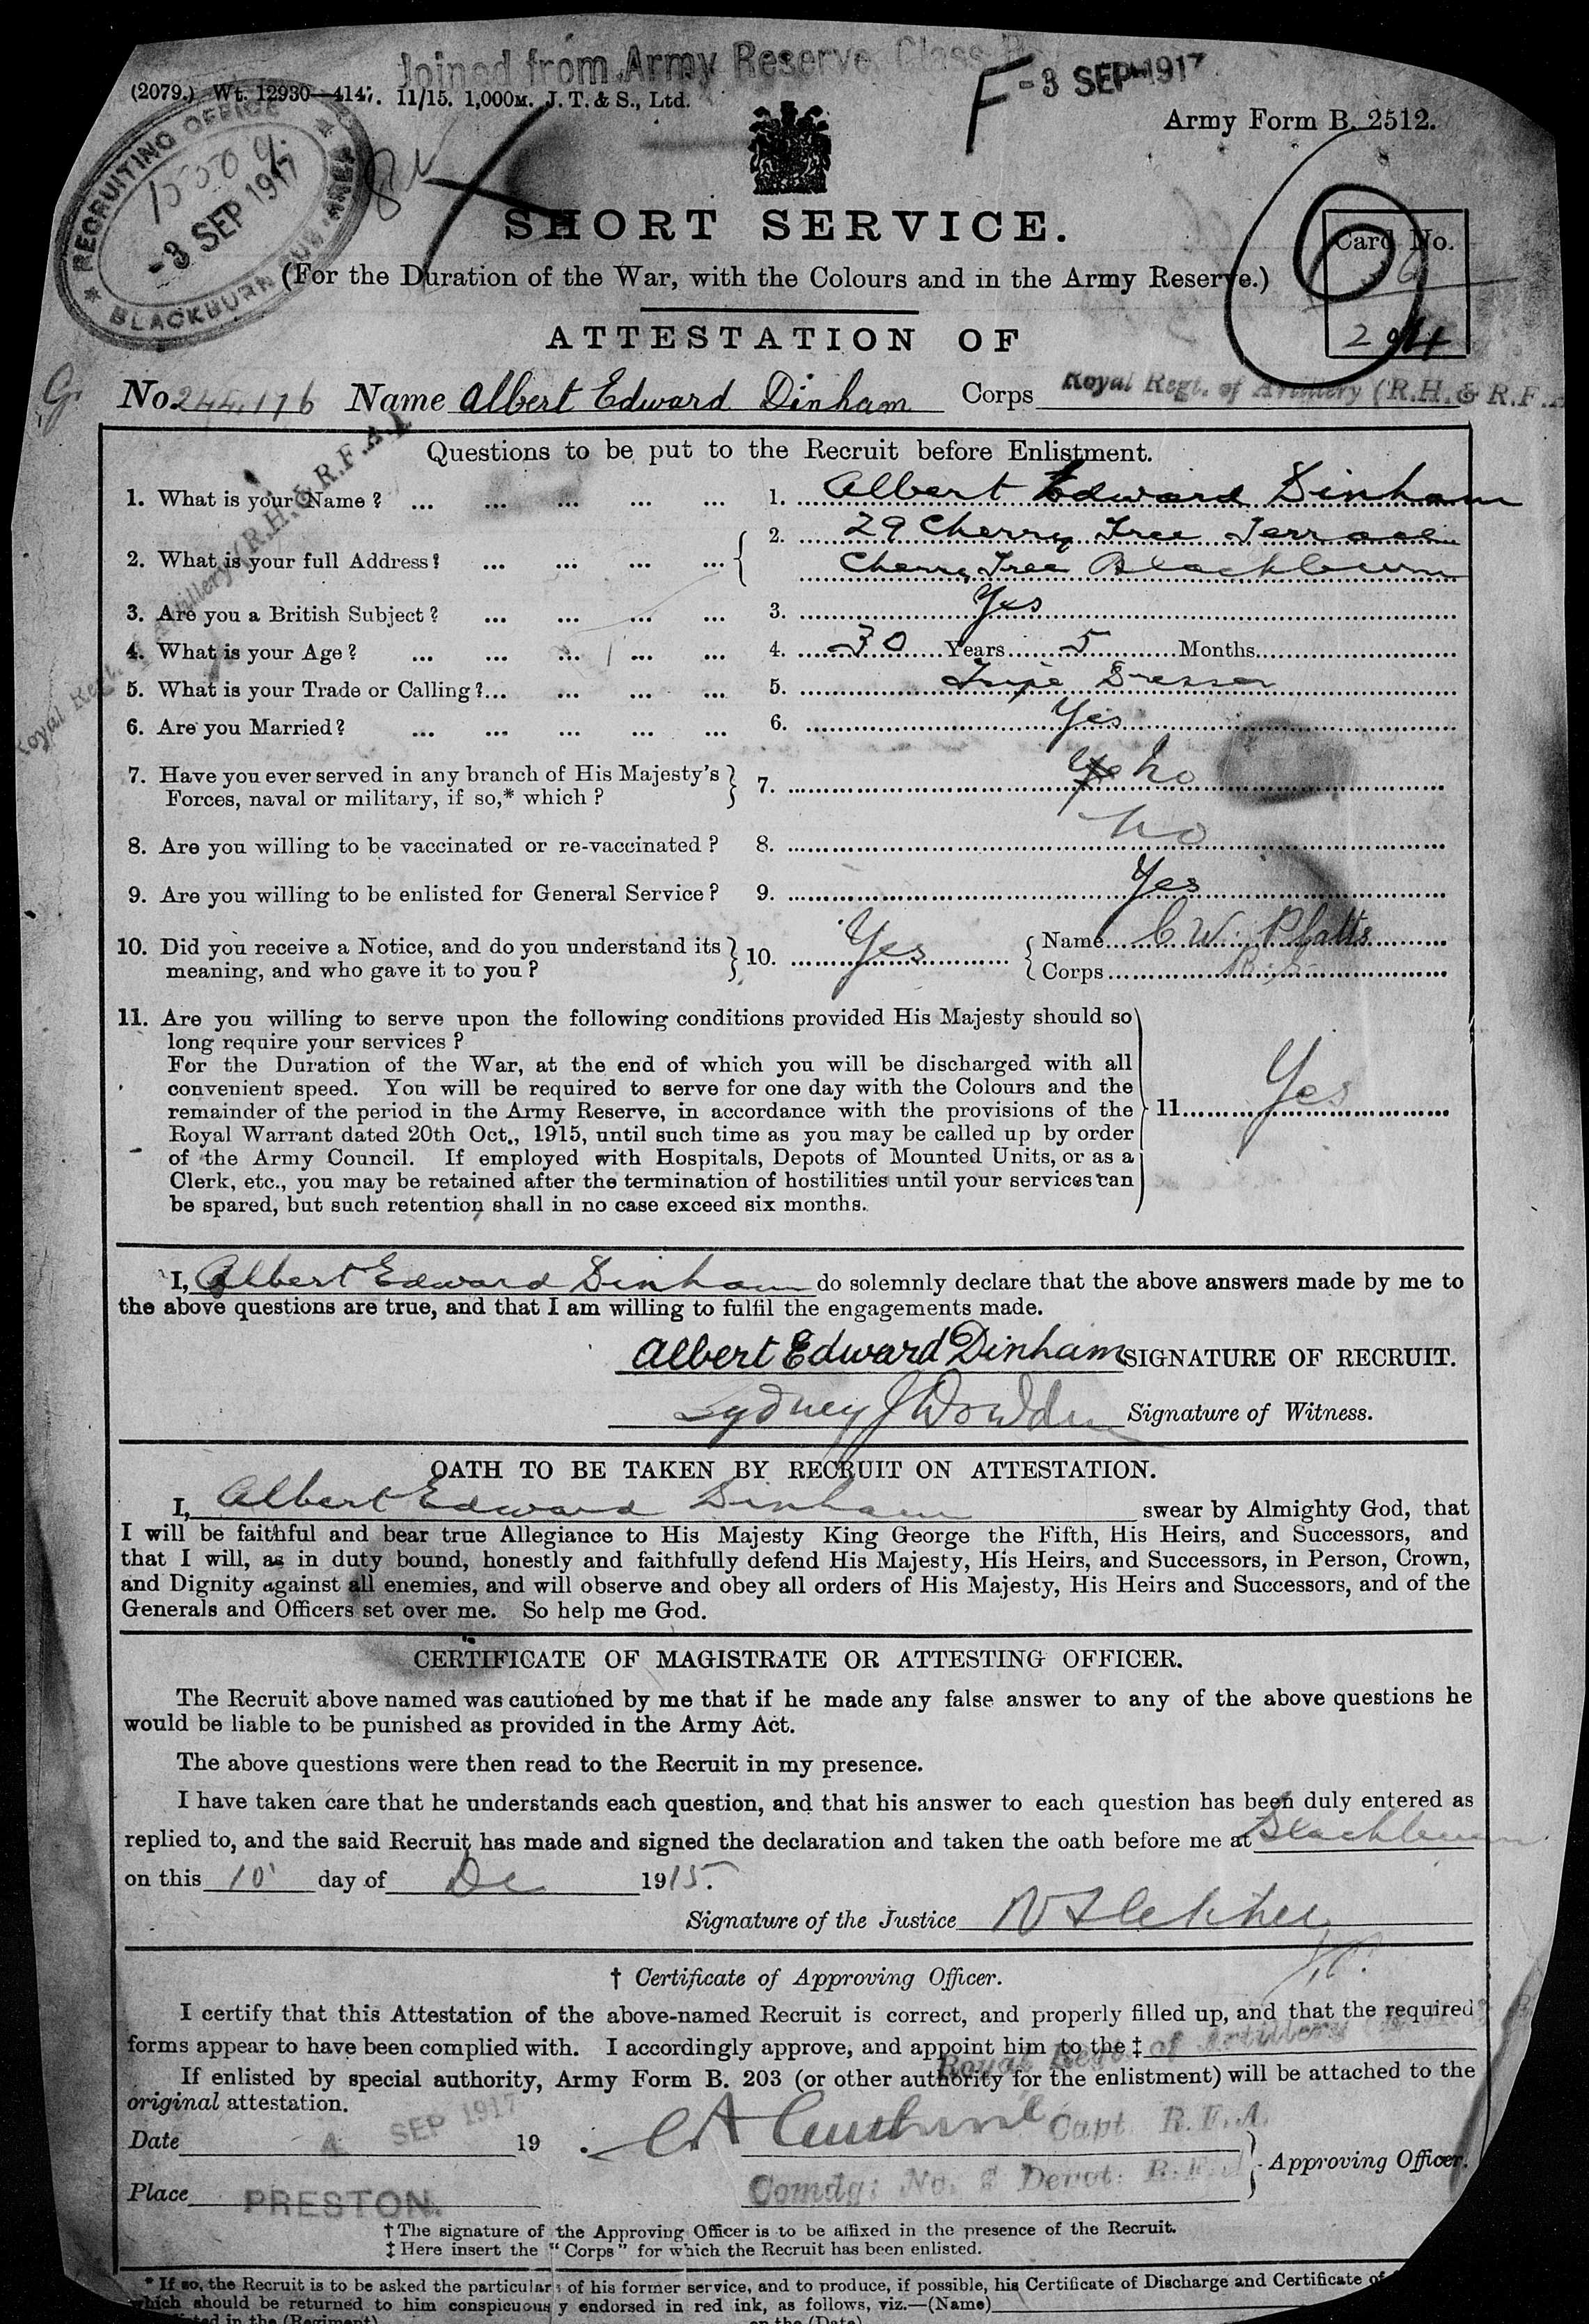 Joined from Army Reserve, Class
F -3 SEP 1917
(2079.) Wt. 12930—4147. 11/15. 1,000M. J. T. & S., Ltd.
Army Form B. 2512.
RECRUITING OFFICE
-3 SEP 1917
BLACKBURN SUB-AREA
SHORT SERVICE.
Card No.
(For the Duration of the War, with the Colours and in the Army Reserve.)
ATTESTATION OF
No. 244,176 Name Albert Edward Dinham Corps Royal Regt. of Artillery (R.H. & R.F.A
Royal Regt. of Artillery (R.H. & R.F.A.)
Questions to be put to the Recruit before Enlistment.
1. What is your Name? ... ... ... ... ... 1. Albert Edward Dinham
2. What is your full Address? ... ... ... ... 2. 29 Cherry Tree Terrace
Cherry Tree Blackburn
3. Are you a British Subject? ... ... ... ... 3. Yes
4. What is your Age? ... ... ... ... ... 4. 30 Years 5 Months
5. What is your Trade or Calling?... ... ... ... 5. Tripe Dresser
6. Are you Married? ... ... ... ... ... 6. Yes
7. Have you ever served in any branch of His Majesty's
Forces, naval or military, if so,* which? 7. Yes No
8. Are you willing to be vaccinated or re-vaccinated? 8. No
9. Are you willing to be enlisted for General Service? 9. Yes
10. Did you receive a Notice, and do you understand its
meaning, and who gave it to you? 10. Yes Name C W. Platts
Corps
11. Are you willing to serve upon the following conditions provided His Majesty should so
long require your services?
For the Duration of the War, at the end of which you will be discharged with all
convenient speed. You will be required to serve for one day with the Colours and the
remainder of the period in the Army Reserve, in accordance with the provisions of the 11. Yes
Royal Warrant dated 20th Oct., 1915, until such time as you may be called up by order
of the Army Council. If employed with Hospitals, Depots of Mounted Units, or as a
Clerk, etc., you may be retained after the termination of hostilities until your services can
be spared, but such retention shall in no case exceed six months.
I, Albert Edward Dinham do solemnly declare that the above answers made by me to
the above questions are true, and that I am willing to fulfil the engagements made.
Albert Edward Dinham SIGNATURE OF RECRUIT.
Sydney J Signature of Witness.
OATH TO BE TAKEN BY RECRUIT ON ATTESTATION.
I, Albert Edward Dinham swear by Almighty God, that
I will be faithful and bear true Allegiance to His Majesty King George the Fifth, His Heirs, and Successors, and
that I will, as in duty bound, honestly and faithfully defend His Majesty, His Heirs, and Successors, in Person, Crown,
and Dignity against all enemies, and will observe and obey all orders of His Majesty, His Heirs and Successors, and of the
Generals and Officers set over me. So help me God.
CERTIFICATE OF MAGISTRATE OR ATTESTING OFFICER.
The Recruit above named was cautioned by me that if he made any false answer to any of the above questions he
would be liable to be punished as provided in the Army Act.
The above questions were then read to the Recruit in my presence.
I have taken care that he understands each question, and that his answer to each question has been duly entered as
replied to, and the said Recruit has made and signed the declaration and taken the oath before me at Blackburn
on this 10 day of De 1915.
Signature of the Justice
† Certificate of Approving Officer.
I certify that this Attestation of the above-named Recruit is correct, and properly filled up, and that the required
forms appear to have been complied with. I accordingly approve, and appoint him to the ‡
Royal Regt. of Artillery
If enlisted by special authority, Army Form B. 203 (or other authority for the enlistment) will be attached to the
original attestation.
Date 4 SEP 1917 19 Capt. R.F.A.
Approving Officer.
Place PRESTON. Comdg: No. Depot: R.F.A
† The signature of the Approving Officer is to be affixed in the presence of the Recruit.
‡ Here insert the "Corps" for which the Recruit has been enlisted.
* If so, the Recruit is to be asked the particulars of his former service, and to produce, if possible, his Certificate of Discharge and Certificate of
which should be returned to him conspicuously endorsed in red ink, as follows, viz.—(Name)
in the (Regiment) on the (Date)